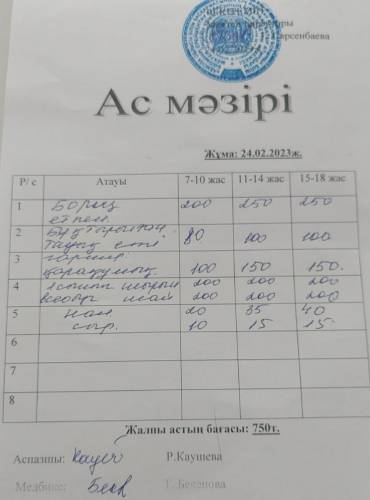 БЕКІТЕМІН
Арсенбаева
Ас мәзірі
Жұма: 24.02.2023ж.
Р/ с Атауы 7-10 жас 11-14 жас 15-18 жас
1 Борщ 200 250 250
етпен.
2 Бұқтырылған
тауық еті 80 100 100
3 гарнир
қарақұмық 100 150 150.
4 шырын 200 200 200
200 200 200
5 нан 20 35 40
сыр. 10 15 15
6
7
8
Жалпы астың бағасы: 750т.
Аспазшы: Р.Каушева
Медбике: Г. Бекенова